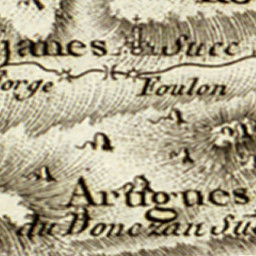 janes Succ
orge Foulon
Artigues
du Donezan Su